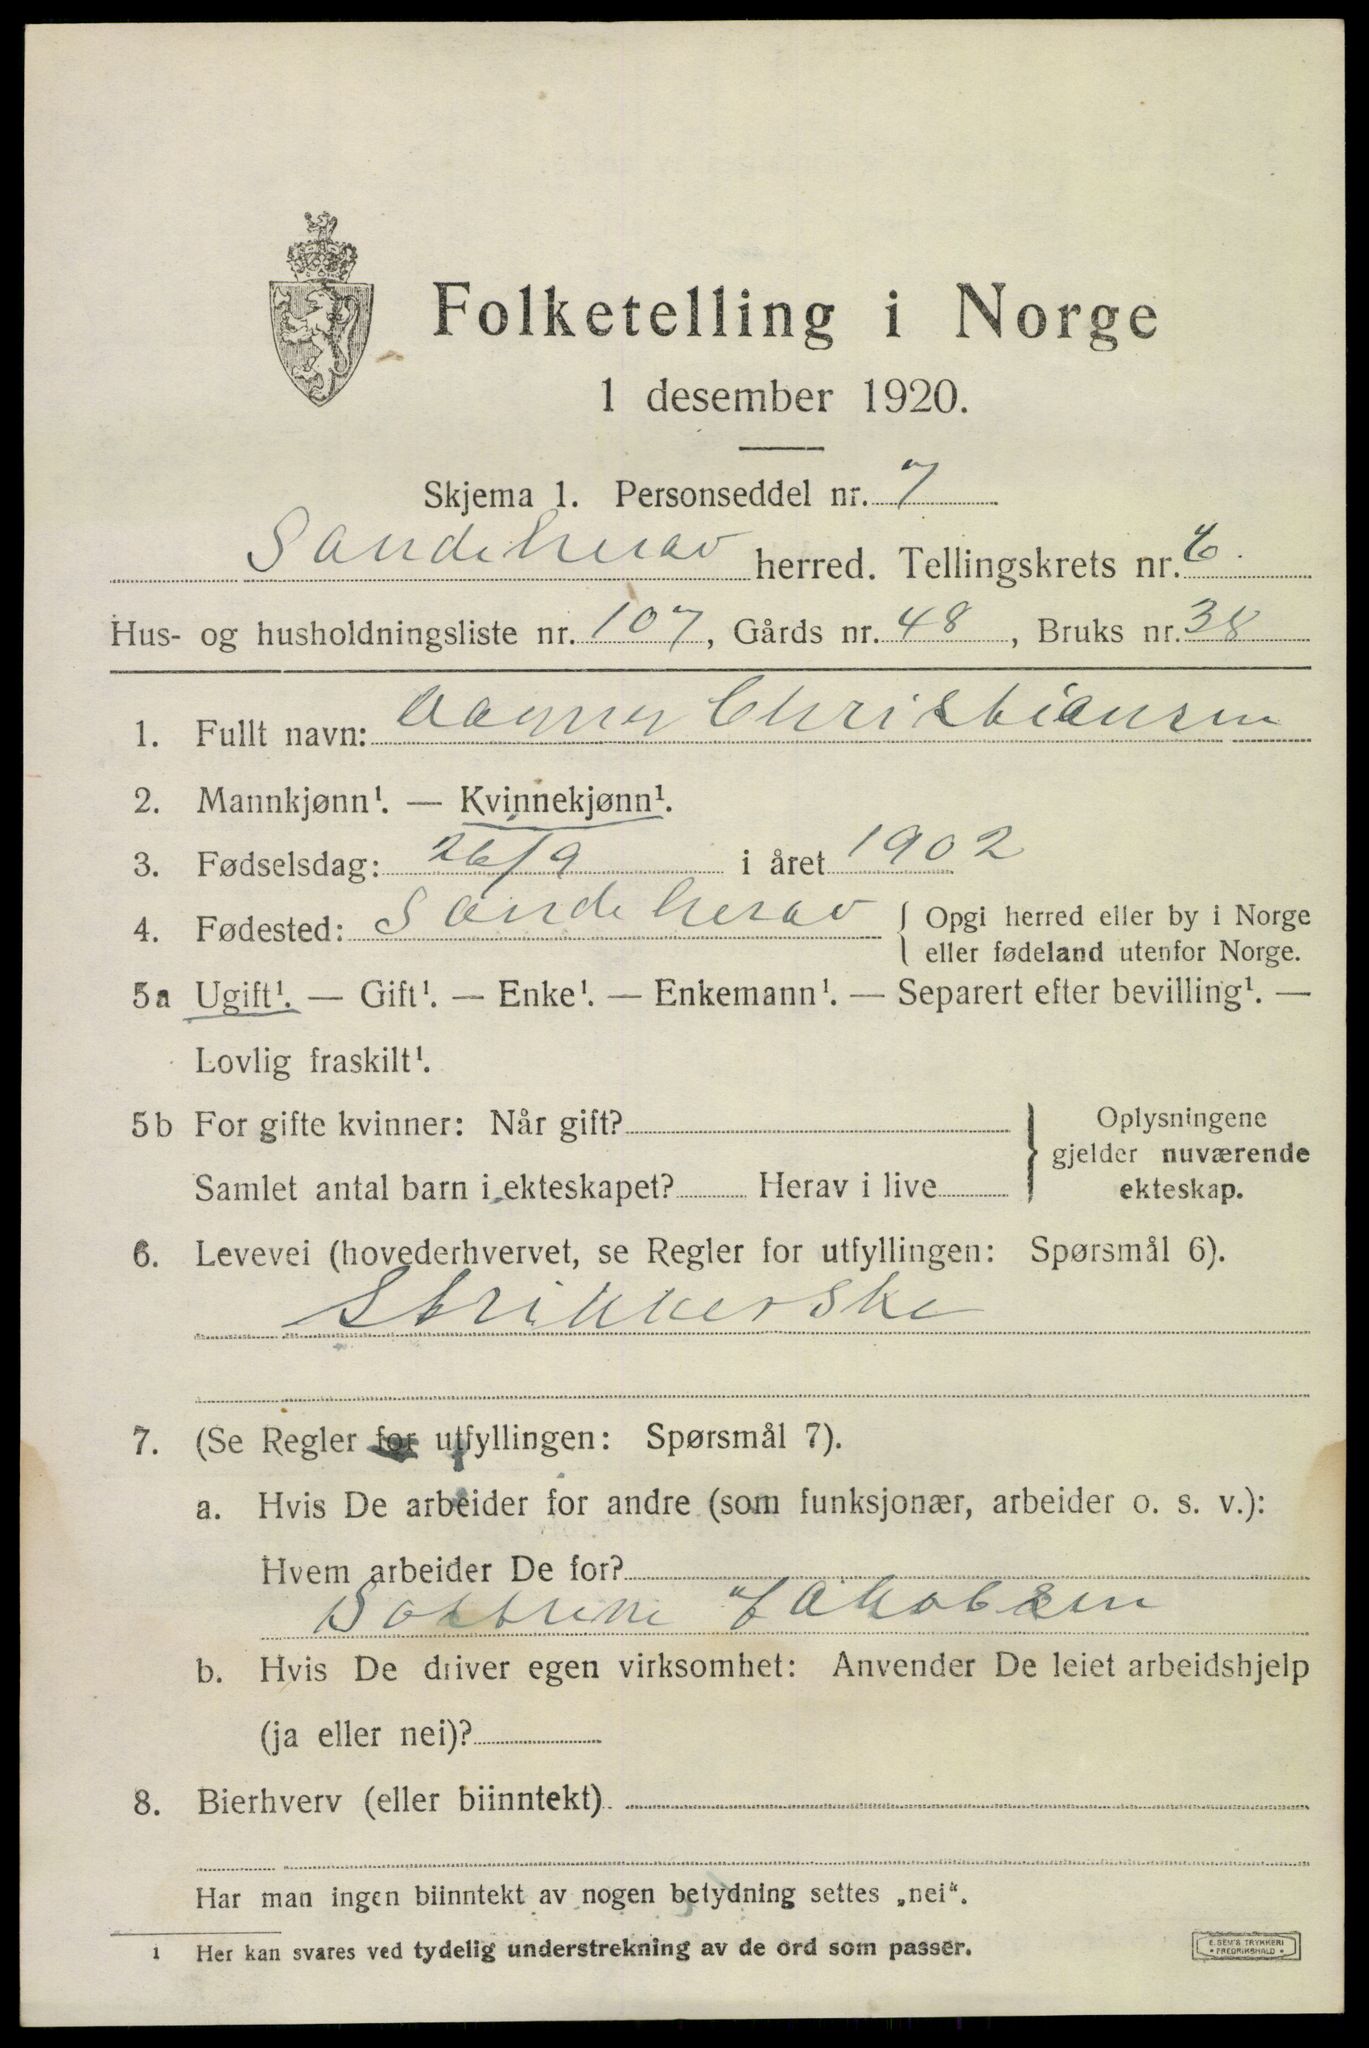 Folketelling i Norge
1 desember 1920.
Skjema 1. Personseddel nr. 7
Sandeherav herred. Tellingskrets nr. 6.
Hus- og husholdningsliste nr. 107, Gårds nr. 48, Bruks nr. 38
1. Fullt navn: Dagny Christiansen
2. Mannkjønn¹. — Kvinnekjønn¹.
3. Fødselsdag: 26/9 i året 1902
4. Fødested: Sandeherav { Opgi herred eller by i Norge
eller fødeland utenfor Norge.
5a Ugift¹. — Gift¹. — Enke¹. — Enkemann¹. — Separert efter bevilling¹. —
Lovlig fraskilt¹.
5b For gifte kvinner: Når gift? } Oplysningene
gjelder nuværende
Samlet antal barn i ekteskapet? Herav i live ekteskap.
6. Levevei (hovederhvervet, se Regler for utfyllingen: Spørsmål 6).
Strikkerske
7. (Se Regler for utfyllingen: Spørsmål 7).
a. Hvis De arbeider for andre (som funksjonær, arbeider o. s. v.):
Hvem arbeider De for?
Jakobsen
b. Hvis De driver egen virksomhet: Anvender De leiet arbeidshjelp
(ja eller nei)?
8. Bierhverv (eller biinntekt)
Har man ingen biinntekt av nogen betydning settes „nei“.
1 Her kan svares ved tydelig understrekning av de ord som passer.
E. SEM'S TRYKKERI
• FREDRIKSHALD •